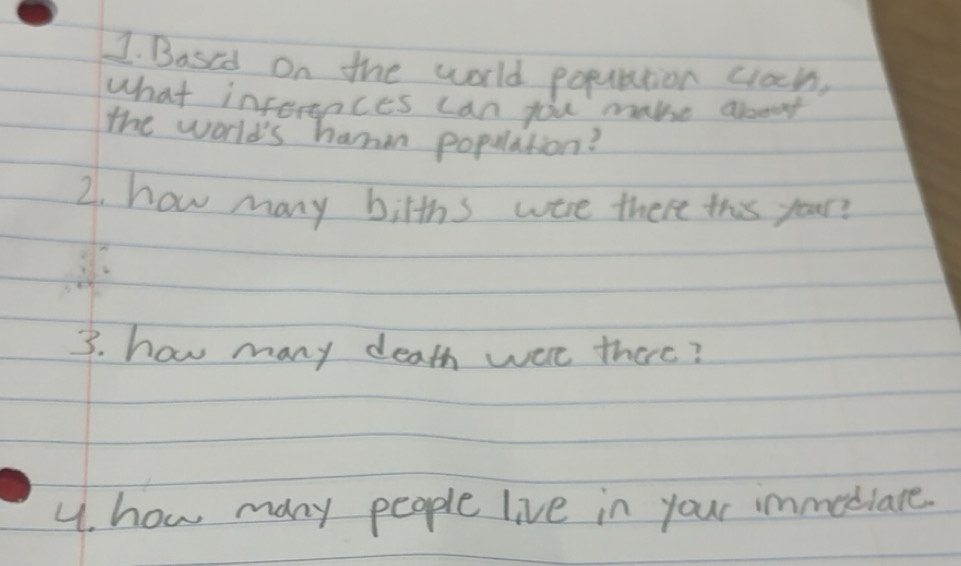 1. Based on the world popuation clock,
what inferences can you make about
the world's haman population?
2. how many births were there this year?
3. how many death were there?
4. how many people live in your immediate.